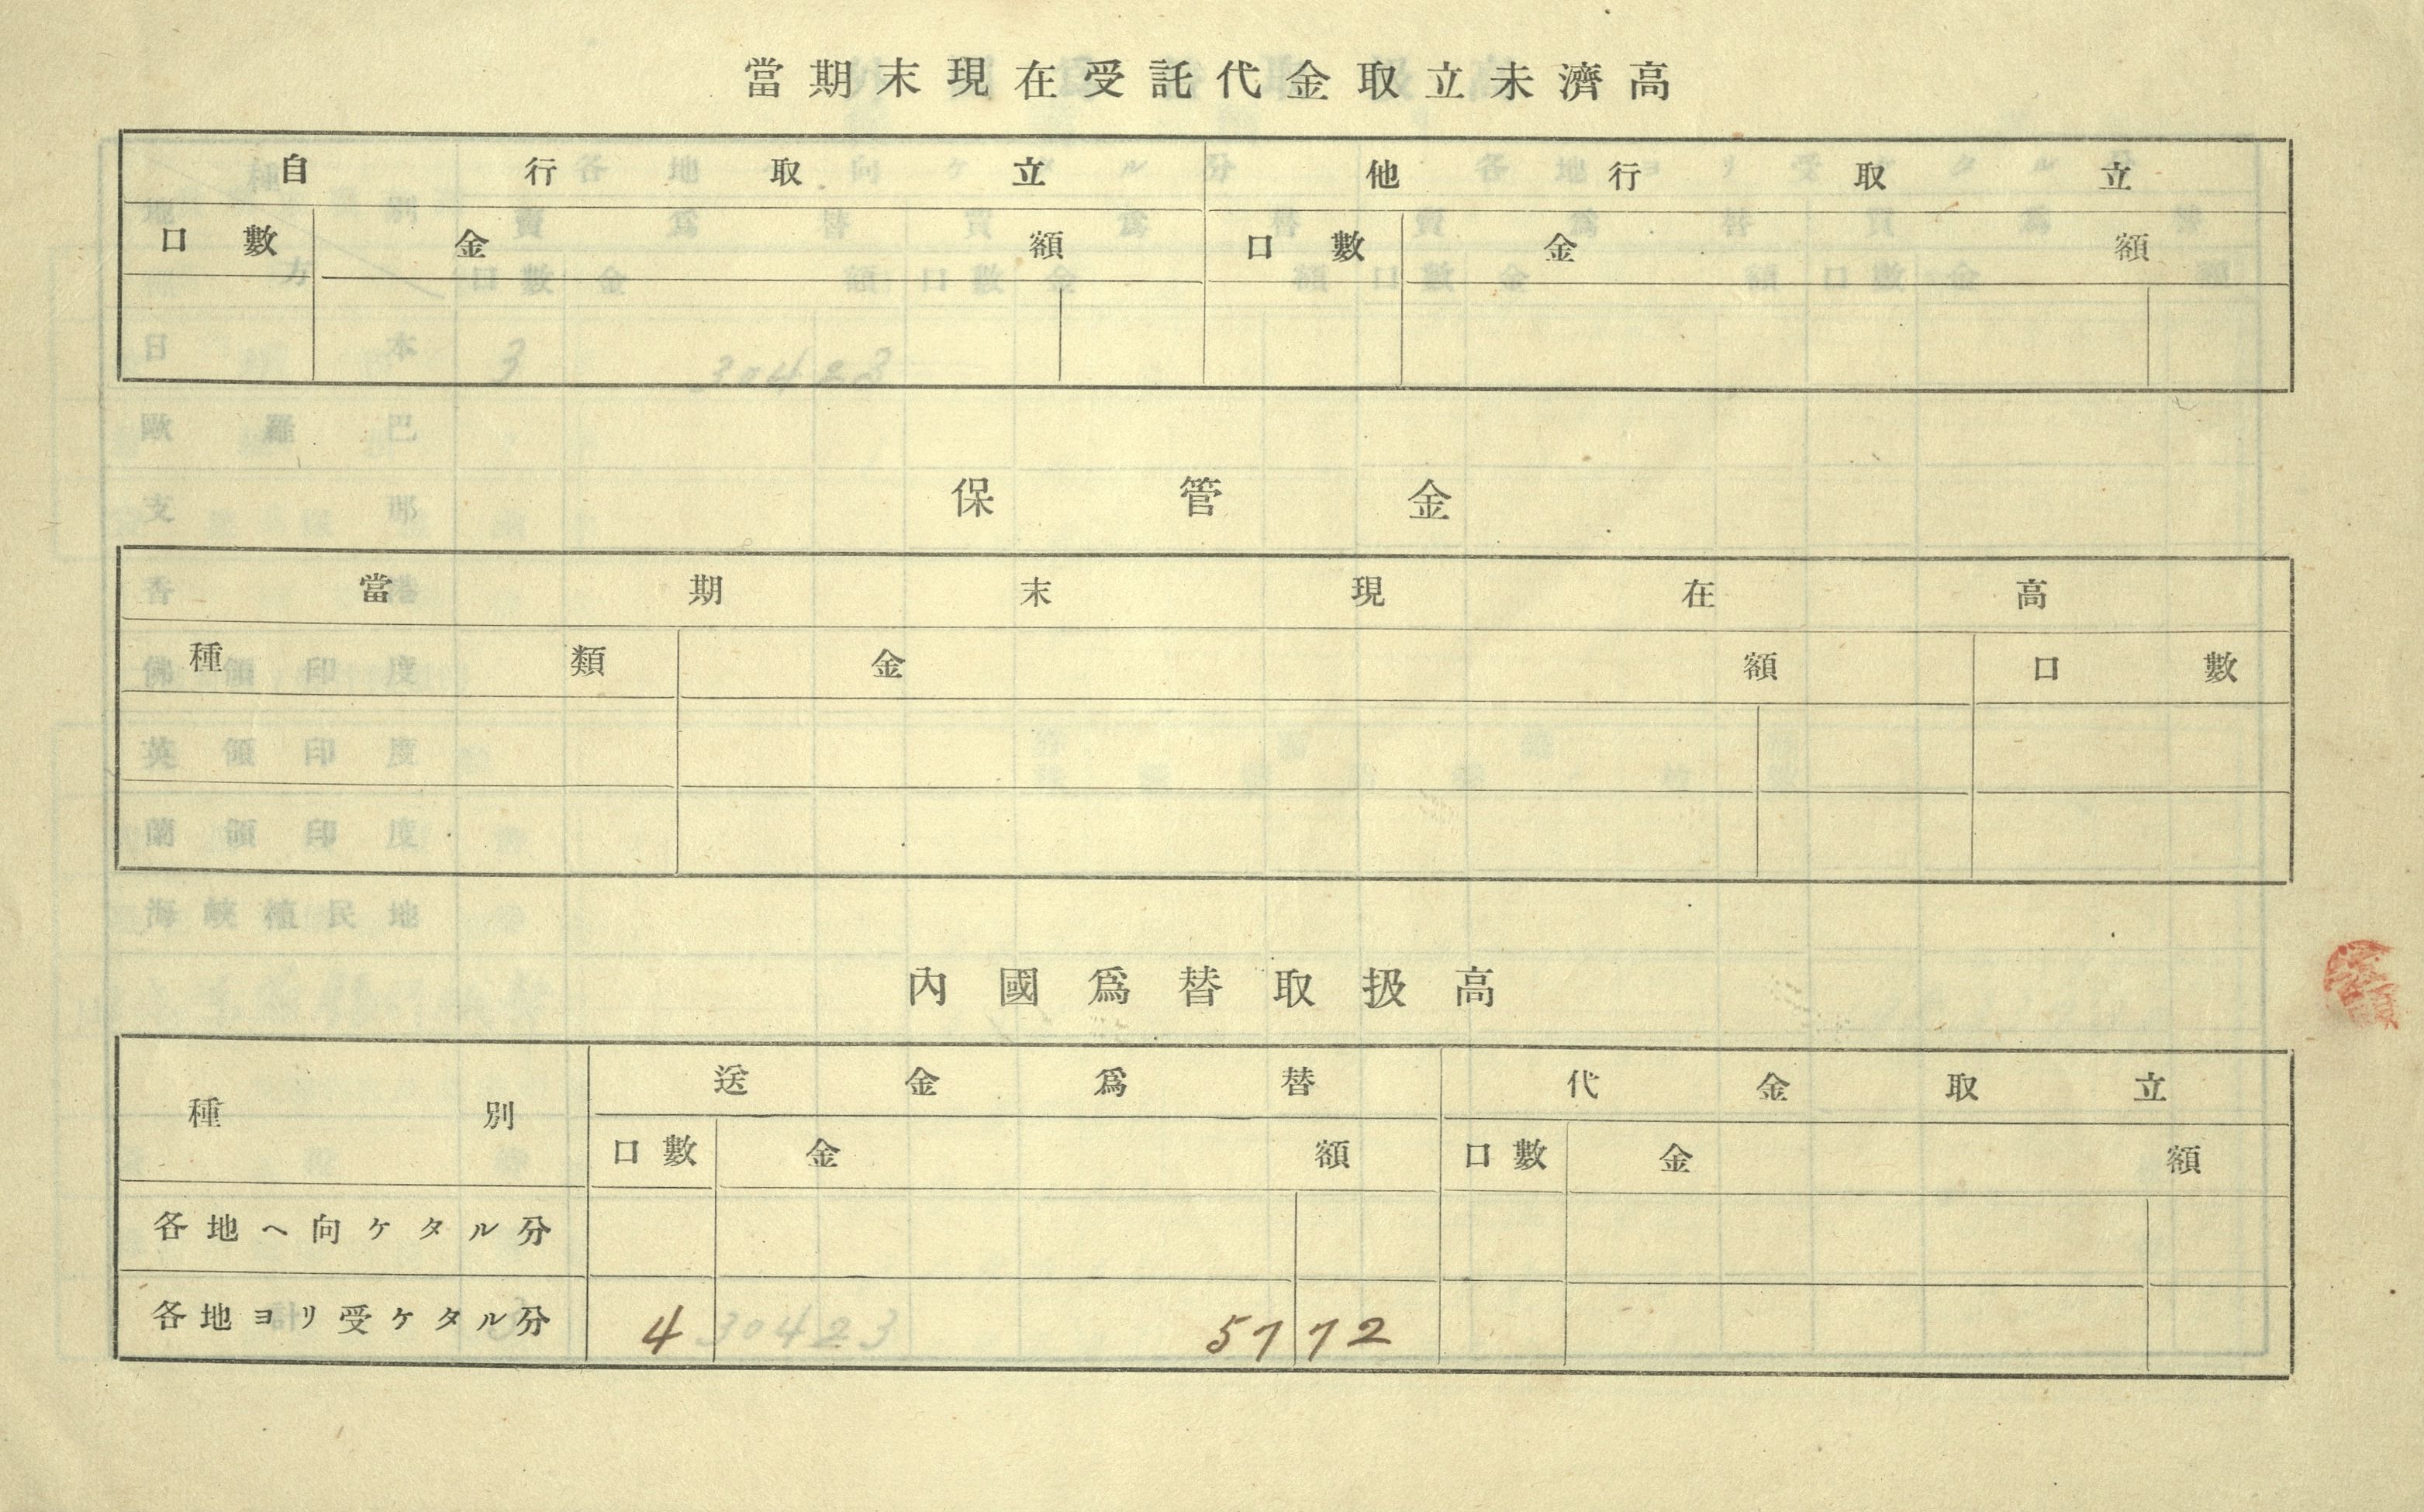 當期末現在受託代金取立未濟高
自行取立 他行取立
口數 金額 口數 金額
保管金
當期末現在高
種類 金額 口數
內國爲替取扱高
種別 送金爲替 代金取立
口數 金額 口數 金額
各地ヘ向ケタル分
各地ヨリ受ケタル分 4 57 72